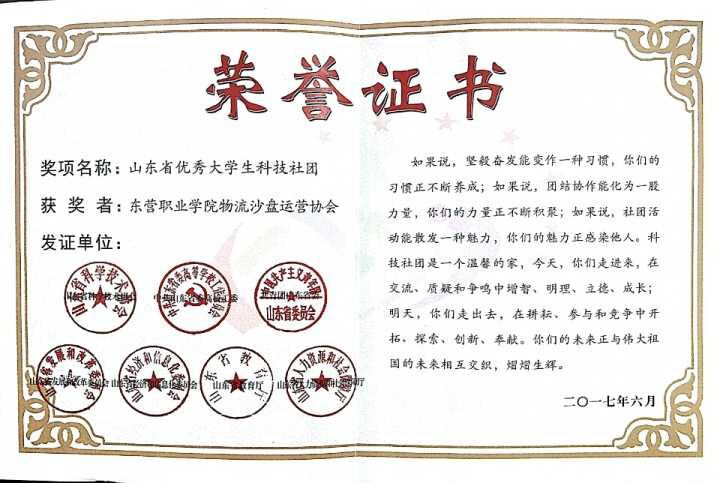 荣誉证书
奖项名称：山东省优秀大学生科技社团
获奖者：东营职业学院物流沙盘运营协会
发证单位：
山东省科学技术协会
中共山东省委高等学校工作委员会
中国共产主义青年团
山东省委员会
山东省发展和改革委员会
山东省经济和信息化委员会
山东省教育厅
山东省人力资源和社会保障厅
如果说，坚毅奋发能变作一种习惯，你们的
习惯正不断养成；如果说，团结协作能化为一股
力量，你们的力量正不断积聚；如果说，社团活
动能散发一种魅力，你们的魅力正感染他人。科
技社团是一个温馨的家，今天，你们走进来，在
交流、质疑和争鸣中增智、明理、立德、成长；
明天，你们走出去，在耕耘、参与和竞争中开
拓、探索、创新、奉献。你们的未来正与伟大祖
国的未来相互交织，熠熠生辉。
二〇一七年六月